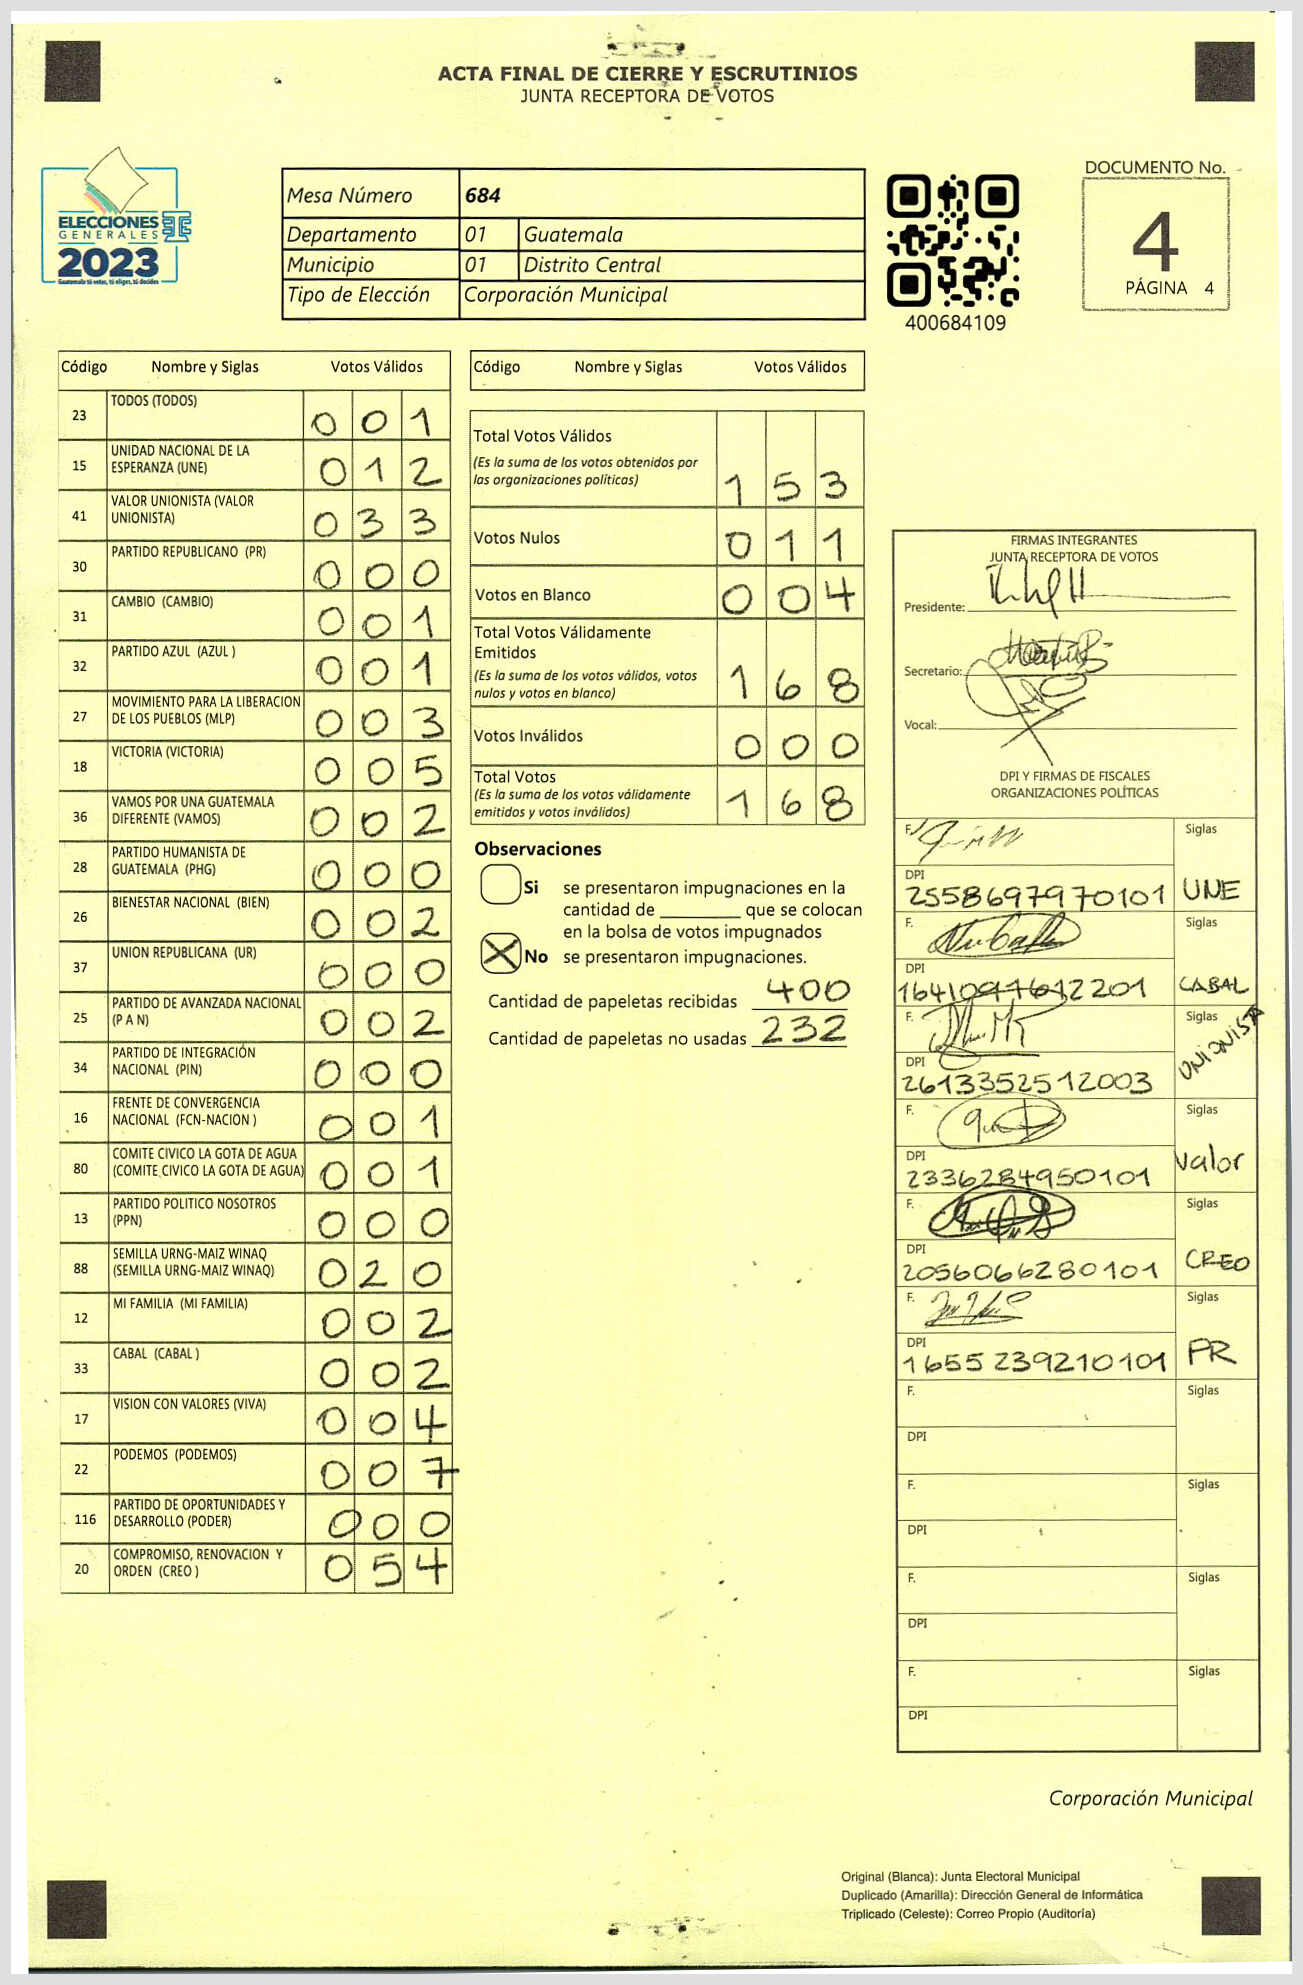 ACTA FINAL DE CIERRE Y ESCRUTINIOS
JUNTA RECEPTORA DE VOTOS
ELECCIONES
GENERALES
2023
Guatemala tú votas, tú eliges, tú decides
Mesa Número 684
Departamento 01 Guatemala
Municipio 01 Distrito Central
Tipo de Elección Corporación Municipal
400684109
DOCUMENTO No.
4
PÁGINA 4
Código Nombre y Siglas Votos Válidos
23 TODOS (TODOS) 001
15 UNIDAD NACIONAL DE LA
ESPERANZA (UNE) 012
41 VALOR UNIONISTA (VALOR
UNIONISTA) 033
30 PARTIDO REPUBLICANO (PR) 000
31 CAMBIO (CAMBIO) 001
32 PARTIDO AZUL (AZUL ) 001
27 MOVIMIENTO PARA LA LIBERACION
DE LOS PUEBLOS (MLP) 003
18 VICTORIA (VICTORIA) 005
36 VAMOS POR UNA GUATEMALA
DIFERENTE (VAMOS) 002
28 PARTIDO HUMANISTA DE
GUATEMALA (PHG) 000
26 BIENESTAR NACIONAL (BIEN) 002
37 UNION REPUBLICANA (UR) 000
25 PARTIDO DE AVANZADA NACIONAL
(P A N) 002
34 PARTIDO DE INTEGRACIÓN
NACIONAL (PIN) 000
16 FRENTE DE CONVERGENCIA
NACIONAL (FCN-NACION ) 001
80 COMITE CIVICO LA GOTA DE AGUA
(COMITE CIVICO LA GOTA DE AGUA) 001
13 PARTIDO POLITICO NOSOTROS
(PPN) 000
88 SEMILLA URNG-MAIZ WINAQ
(SEMILLA URNG-MAIZ WINAQ) 020
12 MI FAMILIA (MI FAMILIA) 002
33 CABAL (CABAL ) 002
17 VISION CON VALORES (VIVA) 004
22 PODEMOS (PODEMOS) 007
116 PARTIDO DE OPORTUNIDADES Y
DESARROLLO (PODER) 000
20 COMPROMISO, RENOVACION Y
ORDEN (CREO ) 054
Código Nombre y Siglas Votos Válidos
Total Votos Válidos
(Es la suma de los votos obtenidos por
las organizaciones políticas) 153
Votos Nulos 011
Votos en Blanco 004
Total Votos Válidamente
Emitidos
(Es la suma de los votos válidos, votos
nulos y votos en blanco) 168
Votos Inválidos 000
Total Votos
(Es la suma de los votos válidamente
emitidos y votos inválidos) 168
Observaciones
Si se presentaron impugnaciones en la
cantidad de ________ que se colocan
en la bolsa de votos impugnados
X No se presentaron impugnaciones.
Cantidad de papeletas recibidas 400
Cantidad de papeletas no usadas 232
FIRMAS INTEGRANTES
JUNTA RECEPTORA DE VOTOS
Presidente:
Secretario:
Vocal:
DPI Y FIRMAS DE FISCALES
ORGANIZACIONES POLÍTICAS
F. Siglas
DPI
2558697970101 UNE
F. Siglas
DPI
1641097612201 CABAL
F. Siglas
UNIONISTA
DPI
2613352512003
F. Siglas
DPI
2336284950101 Valor
F. Siglas
DPI
2056066280101 CREO
F. Siglas
DPI
1655239210101 PR
F. Siglas
DPI
F. Siglas
DPI
F. Siglas
DPI
F. Siglas
DPI
Corporación Municipal
Original (Blanca): Junta Electoral Municipal
Duplicado (Amarilla): Dirección General de Informática
Triplicado (Celeste): Correo Propio (Auditoría)